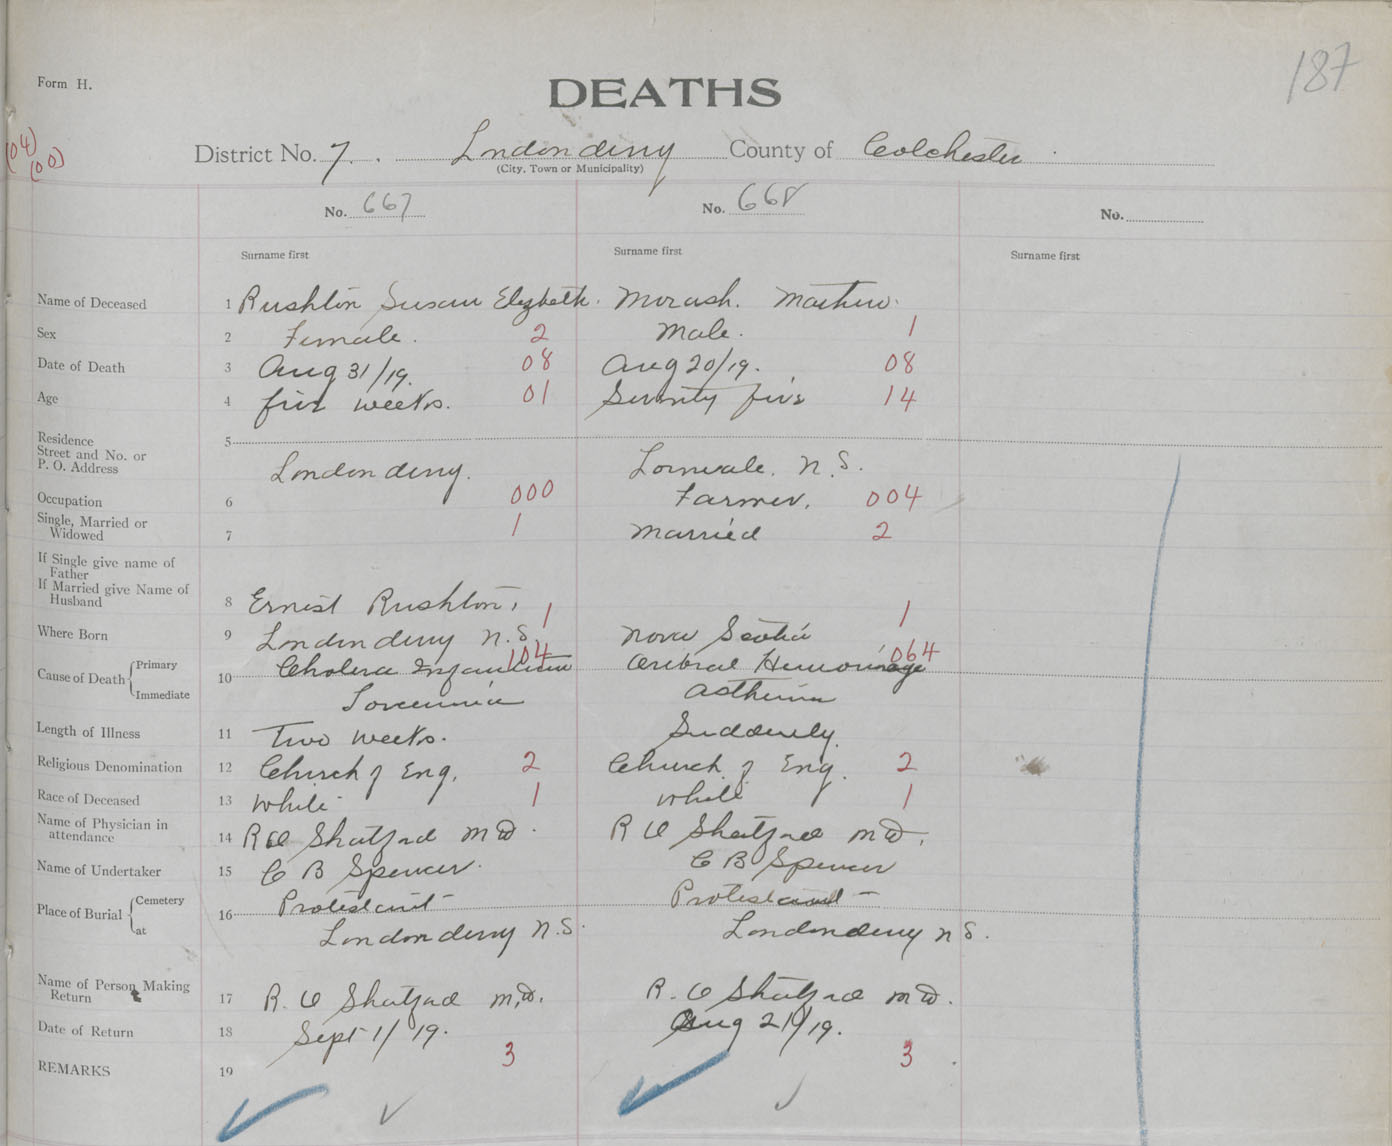 187
Form H.
DEATHS
(04)
(00)
District No. 7. Londonderry County of Colchester
(City, Town or Municipality)
No. 667 No. 668 No.
Surname first Surname first Surname first
Name of Deceased 1 Rushton Susan Elizbeth. Morash. Mathew.
Sex 2 Female. 2 Male. 1
Date of Death 3 Aug 31/19. 08 Aug 20/19. 08
Age 4 five weeks. 01 Seventy five 14
Residence
Street and No. or
P. O. Address
5 Londonderry. Lornevale. N.S.
Occupation 6 000 Farmer. 004
Single, Married or
Widowed
7 1 Married 2
If Single give name of
Father
If Married give Name of
Husband
8 Ernest Rushton. 1 1
Where Born 9 Londonderry N.S. Nova Scotia
104 064
Cause of Death Primary 10 Cholera Infantum Cerebral Hemorrhage
Immediate Toxemia Asthenia
Length of Illness 11 Two weeks. Suddenly.
Religious Denomination 12 Church of Eng. 2 Church of Eng. 2
Race of Deceased 13 White 1 White 1
Name of Physician in
attendance
14 R O Shatford M.D. R O Shatford M.D.
Name of Undertaker 15 C B Spencer. C B Spencer
Place of Burial Cemetery 16 Protestant Protestant
at Londonderry N.S. Londonderry N S.
Name of Person Making
Return
17 R. O Shatford M.D. R. O Shatford M.D.
Date of Return 18 Sept 1/19. Aug 21/19.
3 3
REMARKS 19